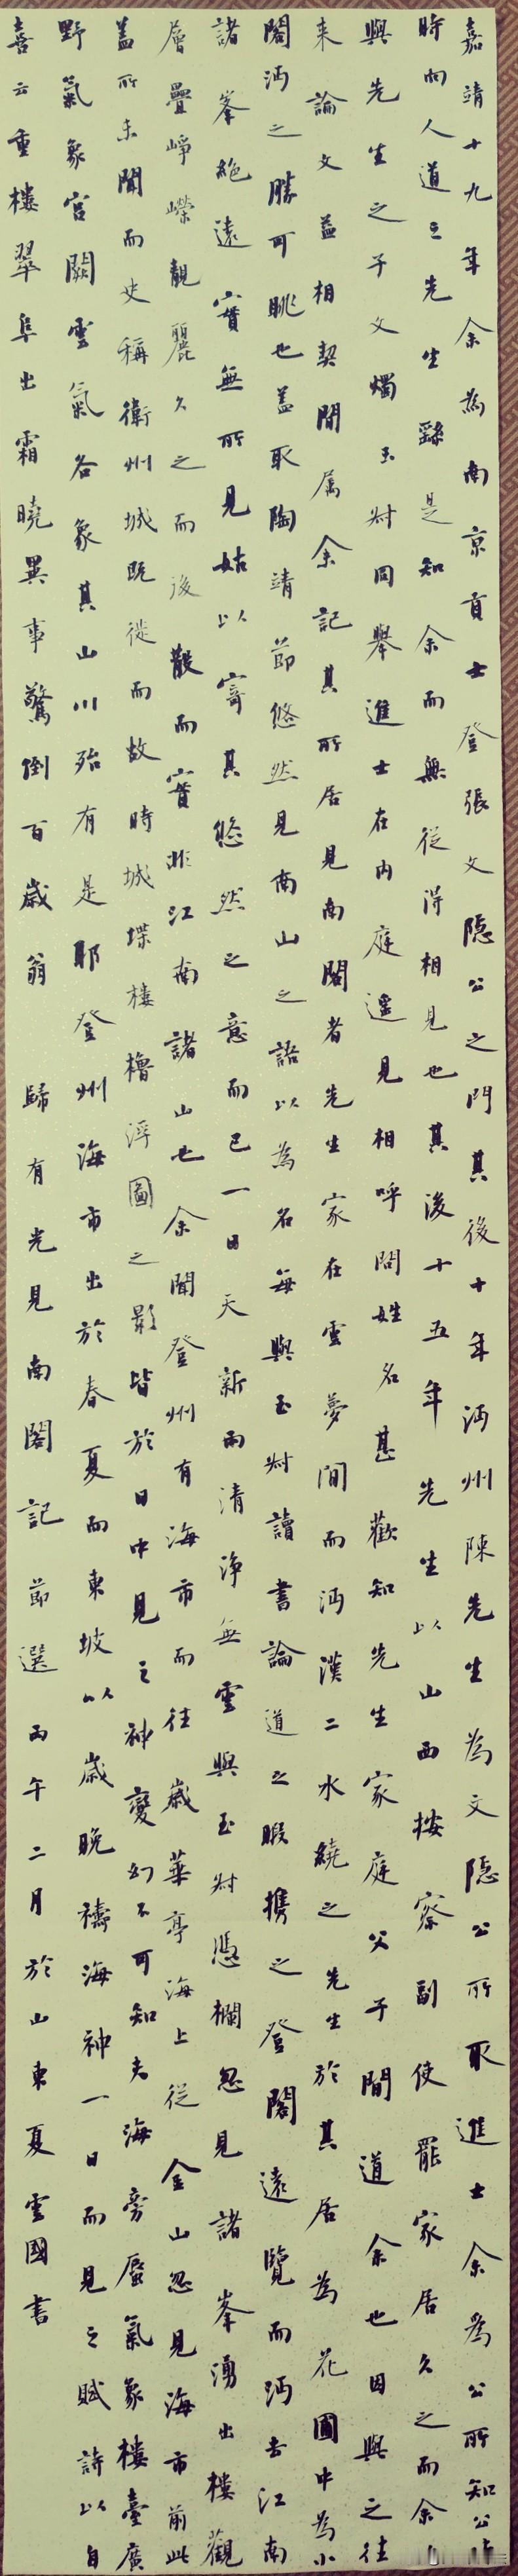 嘉靖十九年余為南京貢士登張文隱公之門其後十年沔州陳先生為文隱公所取進士余為公所知公
時向人道之先生繇是知余而無從得相見也其後十五年先生以山西按察副使罷家居久之而余
與先生之子文燭玉叔同舉進士在內庭遥見相呼問姓名甚歡知先生家庭父子間道余也因與之往
来論文益相契間属余記其所居見南閣者先生家在雲夢間而沔漢二水繞之先生於其居為花圃中為小
閣沔之勝可眺也蓋取陶靖節悠然見南山之語以為名每與玉叔讀書論道之暇携之登閣遠覽而沔去江南
諸峯絕遠實無所見姑以寄其悠然之意而已一日天新雨清淨無雲與玉叔憑欄忽見諸峯湧出樓觀
層疊崢嶸靚麗久之而後散而實非江南諸山也余聞登州有海市而往歲華亭海上從金山忽見海市前此
蓋所未聞而史稱衛州城既徙而故時城堞樓櫓浮圖之影皆於日中見之神變幻不可知夫海旁蜃氣象樓臺廣
野氣象宫闕雲氣各象其山川殆有是耶登州海市出於春夏而東坡以歲晚禱海神一日而見之賦詩以自
喜云重樓翠阜出霜曉異事驚倒百歲翁 歸有光見南閣記節選丙午二月於山東夏雲國書